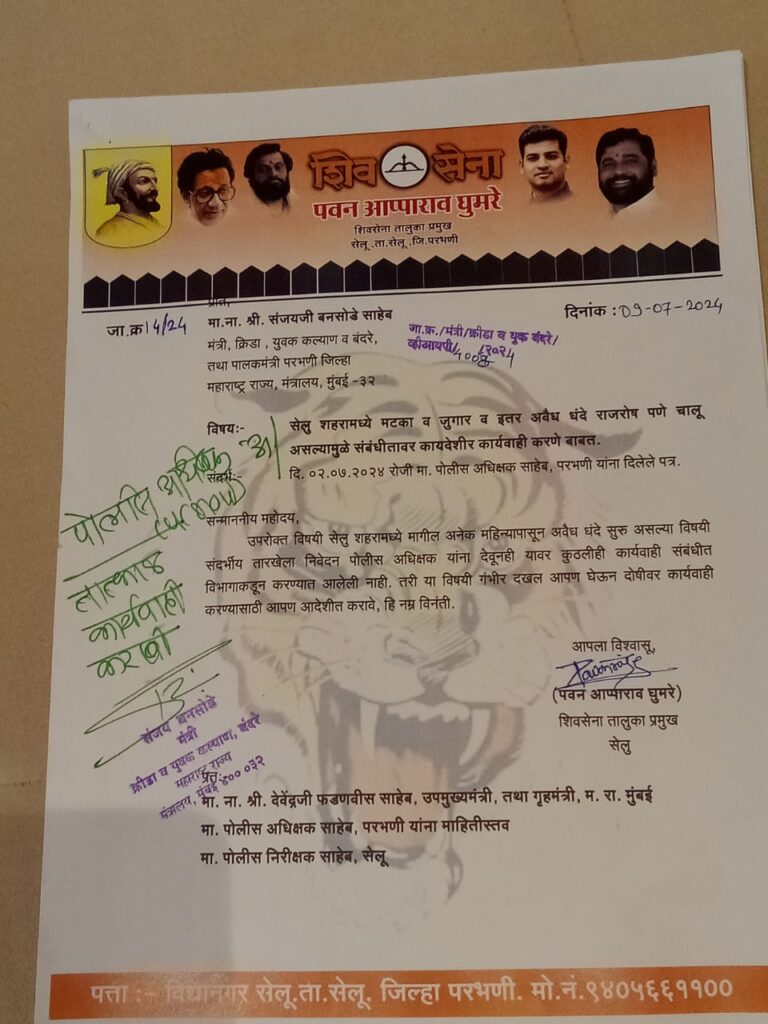 शिव सेना
पवन आप्पाराव घुमरे
शिवसेना तालुका प्रमुख
सेलू .ता.सेलू .जि.परभणी
प्रति,
जा.क्र 14/24
दिनांक : 09-07-2024
मा.ना. श्री. संजयजी बनसोडे साहेब
मंत्री, क्रिडा , युवक कल्याण व बंदरे,
तथा पालकमंत्री परभणी जिल्हा
महाराष्ट्र राज्य, मंत्रालय, मुंबई -३२
जा.क्र./मंत्री/क्रीडा व युक बंदरे/
व्हीआयपी/ /२०२4
विषय:- सेलु शहरामध्ये मटका व जुगार व इतर अवैध धंदे राजरोष पणे चालू
असल्यामुळे संबंधीतावर कायदेशीर कार्यवाही करणे बाबत.
संदर्भ:- दि. ०२.०७.२०२४ रोजी मा. पोलीस अधिक्षक साहेब, परभणी यांना दिलेले पत्र.
सन्माननीय महोदय,
उपरोक्त विषयी सेलु शहरामध्ये मागील अनेक महिन्यापासून अवैध धंदे सुरु असल्या विषयी
संदर्भीय तारखेला निवेदन पोलीस अधिक्षक यांना देवूनही यावर कुठलीही कार्यवाही संबंधीत
विभागाकडून करण्यात आलेली नाही. तरी या विषयी गंभीर दखल आपण घेऊन दोषीवर कार्यवाही
करण्यासाठी आपण आदेशीत करावे, हि नम्र विनंती.
पोलीस अधिक्षक
तात्काळ
कार्यवाही
करावी
आपला विश्वासू,
(पवन आप्पाराव घुमरे)
शिवसेना तालुका प्रमुख
सेलु
संजय बनसोडे
मंत्री
क्रीडा व युवक कल्याण, बंदरे
महाराष्ट्र राज्य
मंत्रालय, मुंबई ४०० ०३२
प्रत:-
मा. ना. श्री. देवेंद्रजी फडणवीस साहेब, उपमुख्यमंत्री, तथा गृहमंत्री, म. रा. मुंबई
मा. पोलीस अधिक्षक साहेब, परभणी यांना माहितीस्तव
मा. पोलीस निरीक्षक साहेब, सेलू
पत्ता :- विद्यानगर सेलू.ता.सेलू. जिल्हा परभणी. मो.नं.९४०५६६११००